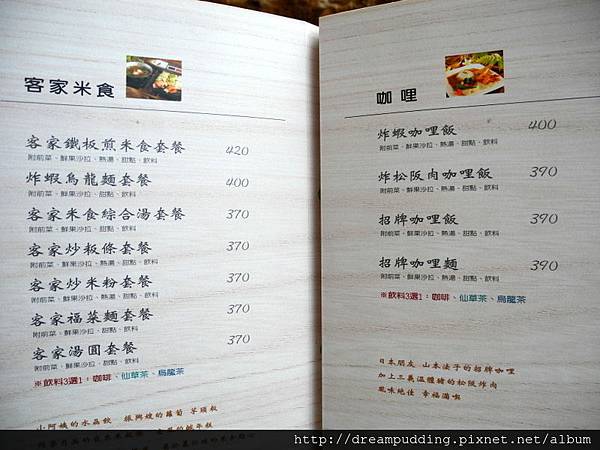 客家米食
客家鐵板煎米食套餐 420
附前菜、鮮果沙拉、熱湯、甜點、飲料
炸蝦烏龍麵套餐 400
附前菜、鮮果沙拉、熱湯、甜點、飲料
客家米食綜合湯套餐 370
附前菜、鮮果沙拉、甜點、飲料
客家炒粄條套餐 370
附前菜、鮮果沙拉、熱湯、甜點、飲料
客家炒米粉套餐 370
附前菜、鮮果沙拉、熱湯、甜點、飲料
客家福菜麵套餐 370
附前菜、鮮果沙拉、甜點、飲料
客家湯圓套餐 370
※飲料3選1：咖啡、仙草茶、烏龍茶
小阿姨的水晶餃 振興嫂的蘿蔔 芋頭粄
咖哩
炸蝦咖哩飯 400
附前菜、鮮果沙拉、熱湯、甜點、飲料
炸松阪肉咖哩飯 390
附前菜、鮮果沙拉、熱湯、甜點、飲料
招牌咖哩飯 390
附前菜、鮮果沙拉、熱湯、甜點、飲料
招牌咖哩麵 390
附前菜、鮮果沙拉、熱湯、甜點、飲料
※飲料3選1：咖啡、仙草茶、烏龍茶
日本朋友 山本法子的招牌咖哩
加上三義溫體豬的松阪炸肉
風味絶佳 幸福滿喫
http://dreampudding.pixnet.net/album